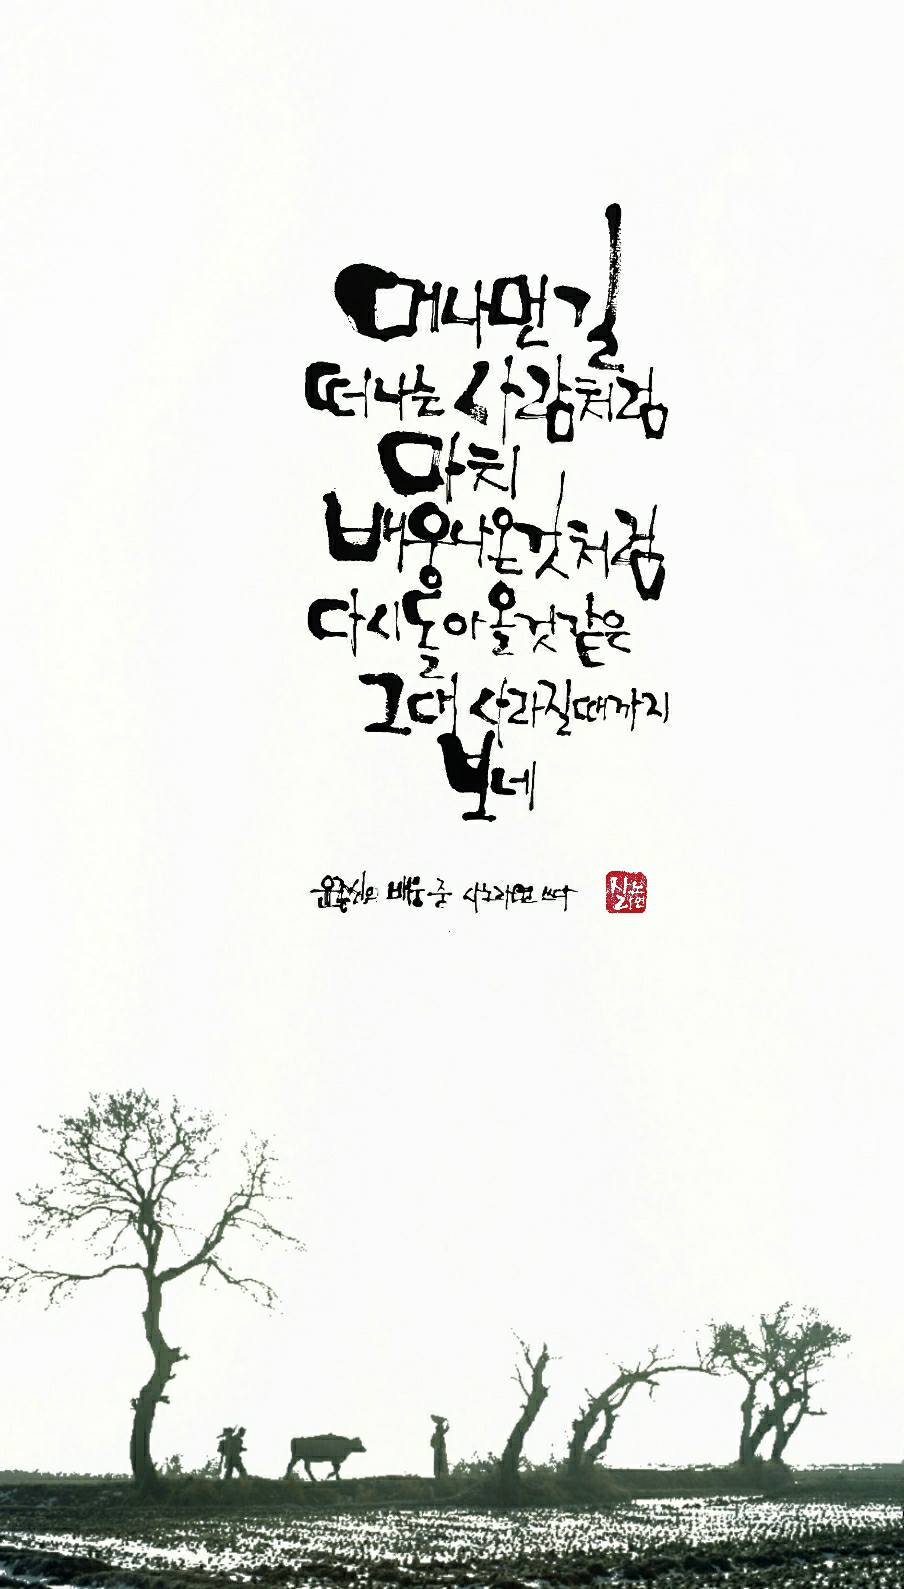 머나먼길
떠나는 사람처럼
마치
배웅나온것처럼
다시돌아올것같은
그대 사라질때까지
보네
윤종신의 배웅 중 사노라면 쓰다
사노
라면